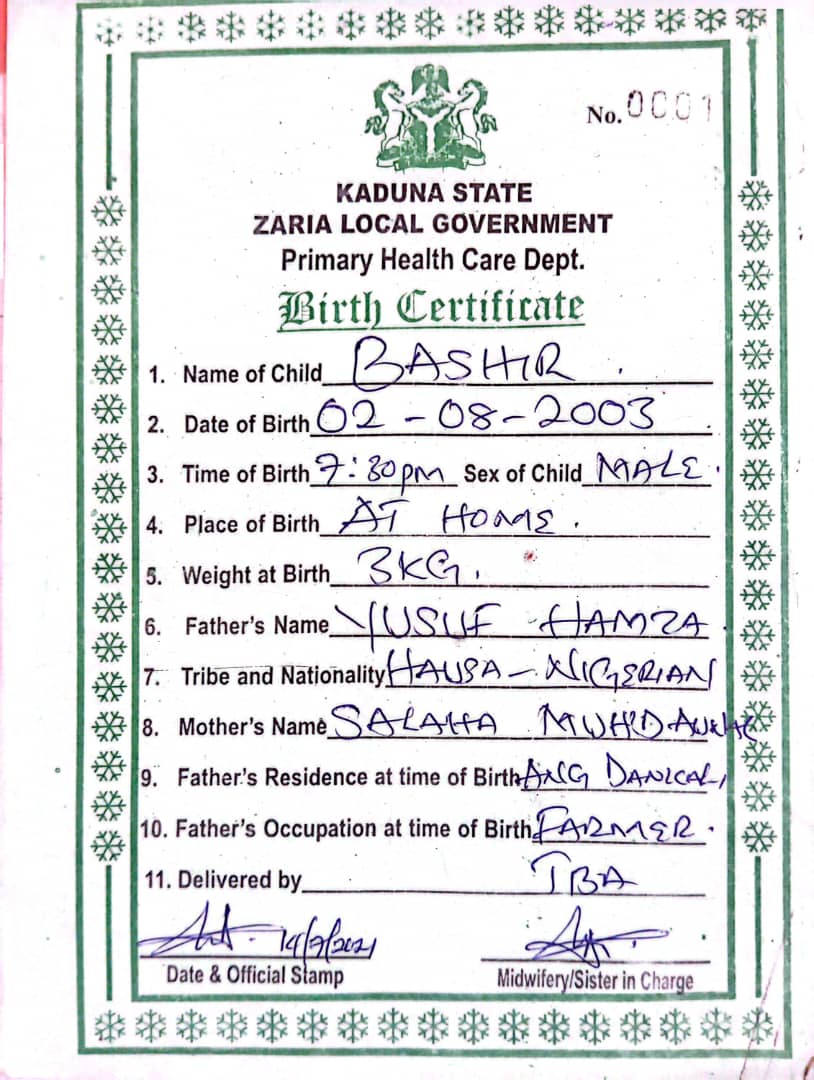 No. 0001
KADUNA STATE
ZARIA LOCAL GOVERNMENT
Primary Health Care Dept.
Birth Certificate
1. Name of Child BASHIR.
2. Date of Birth 02-08-2003
3. Time of Birth 7:30pm Sex of Child MALE.
4. Place of Birth AT HOME.
5. Weight at Birth 3KG.
6. Father's Name YUSUF HAMZA
7. Tribe and Nationality HAUSA-NIGERIAN
8. Mother's Name
9. Father's Residence at time of Birth ANG
10. Father's Occupation at time of Birth FARMER.
11. Delivered by TBA
14/7/2021
Date & Official Stamp Midwifery/Sister in Charge